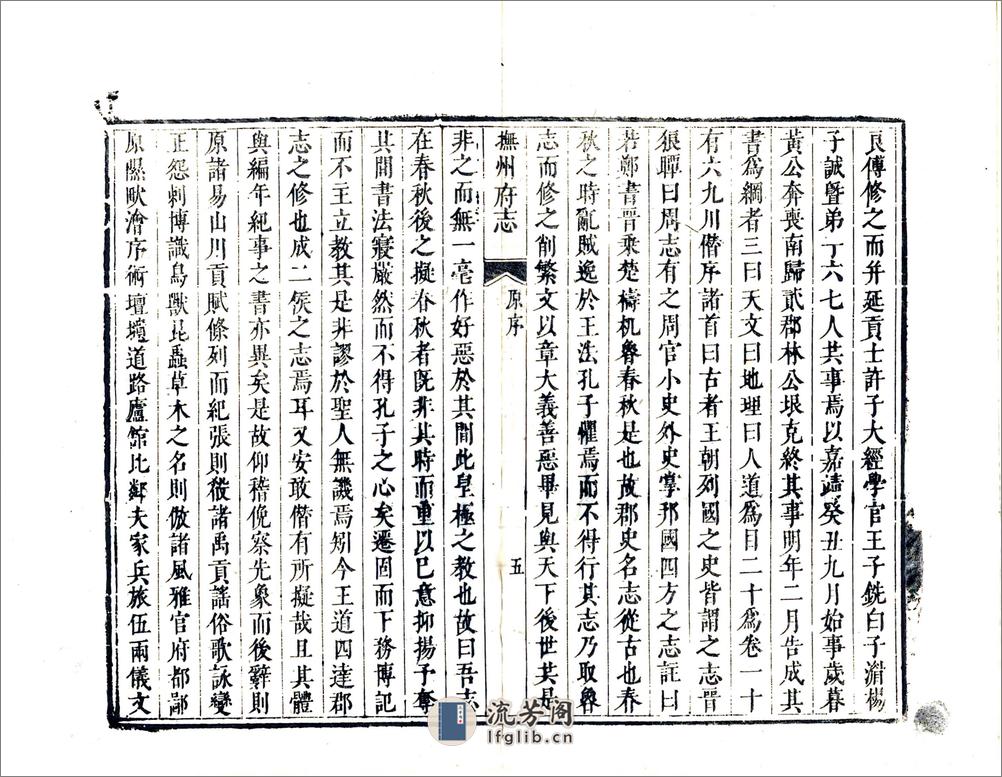 良傅修之而并延貢士許子大經學官王子銑白子渭楊
子誠暨弟丁六七人共事焉以嘉靖癸丑九月始事歲暮
黃公奔喪南歸貳郡林公垠克終其事明年二月告成其
書爲綱者三曰天文曰地理曰人道爲目二十爲卷一十
有六九川僭序諸首曰古者王朝列國之史皆謂之志晉
狼瞫曰周志有之周官小史外史掌邦國四方之志註曰
若鄭書晉乘楚檮杌魯春秋是也故郡史名志從古也春
秋之時亂賊逸於王法孔子懼焉而不得行其志乃取魯
志而修之削繁文以章大義善惡畢見與天下後世共是
撫州府志
原序
五
非之而無一毫作好惡於其間此皇極之教也故曰吾志
在春秋後之擬春秋者旣非其時而重以已意抑揚予奪
其間書法寖嚴然而不得孔子之心矣遷固而下務博記
而不主立教其是非謬於聖人無譏焉矧今王道四達郡
志之修也成二侯之志焉耳又安敢僭有所擬哉且其體
與編年紀事之書亦異矣是故仰稽俛察先象而後辭則
原諸易山川貢賦條列而紀張則從諸禹貢謠俗歌詠變
正怨刺博識鳥獸昆蟲草木之名則倣諸風雅官府都鄙
原隰畎澮序術壇壝道路廬館比鄰夫家兵旅伍兩儀文
流芳阁
lfglib.cn